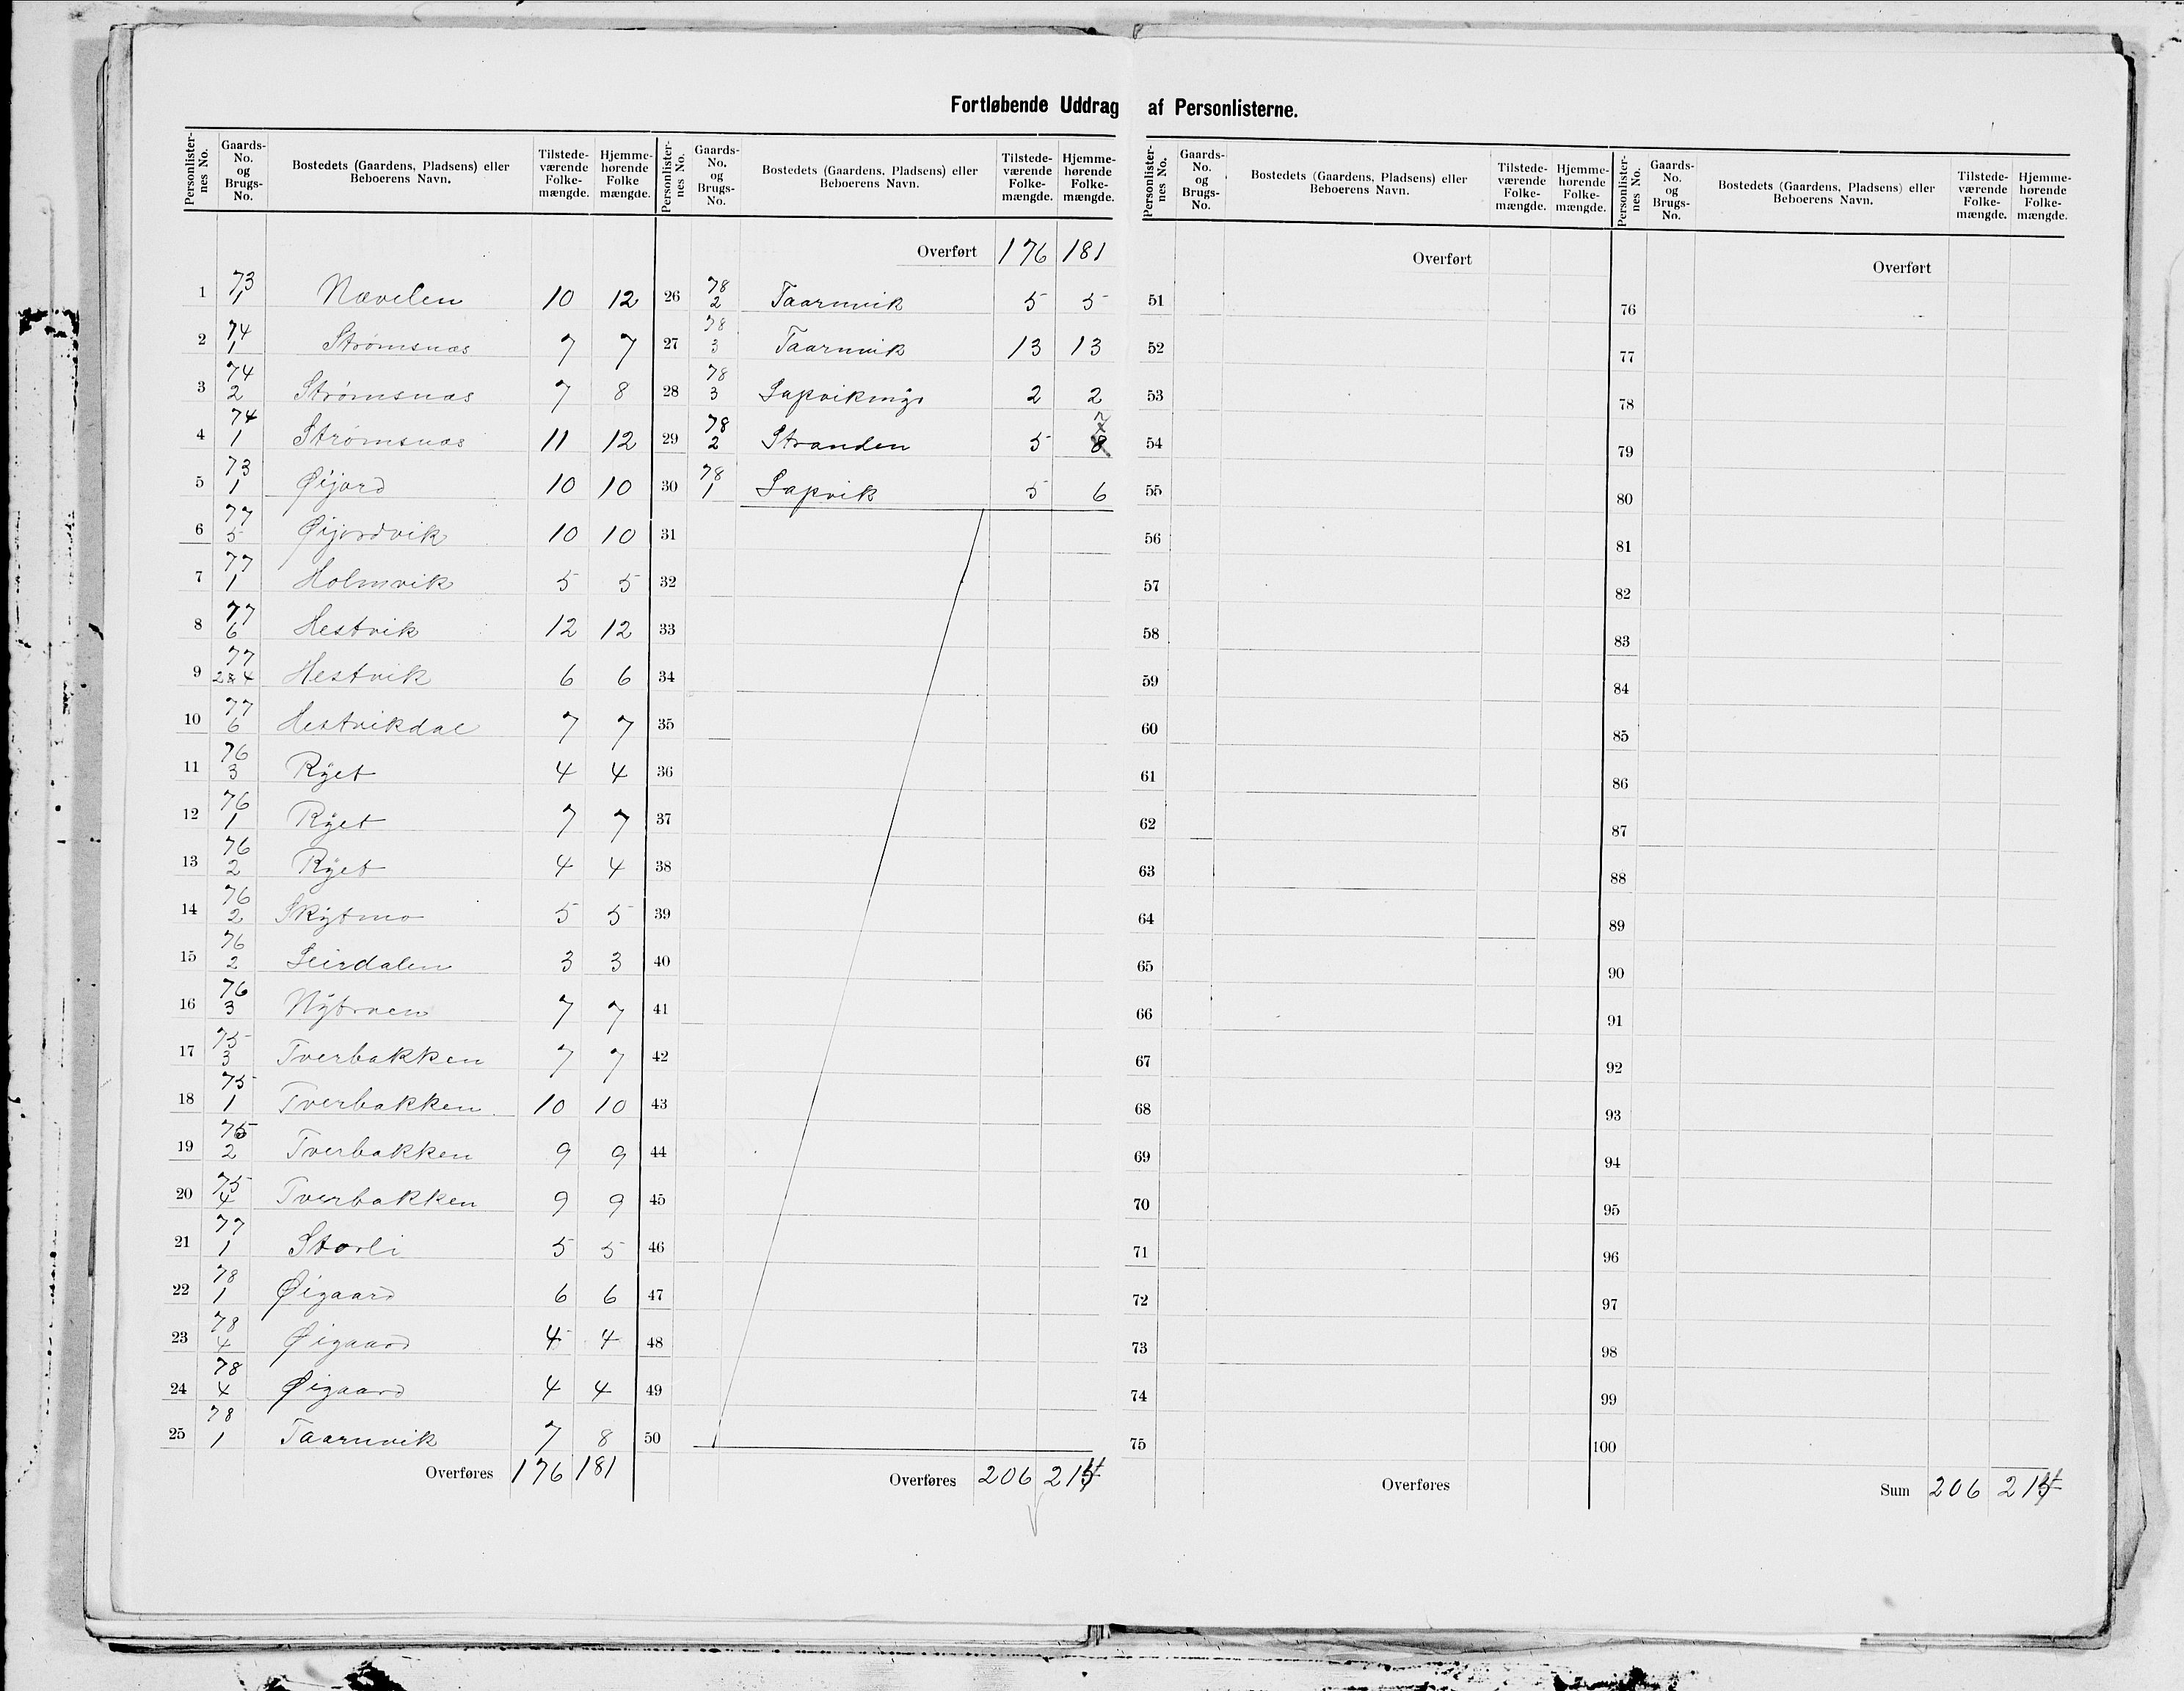 Fortløbende Uddrag af Personlisterne.
Personlisternes No. Gaards-No. og Brugs-No. Bostedets (Gaardens, Pladsens) eller Beboerens Navn. Tilstedeværende Folkemængde. Hjemmehørende Folkemængde.
1 73/1 Nævelen 10 12
2 74/1 Strømsnæs 7 7
3 74/2 Strømsnæs 7 8
4 74/1 Strømsnæs 11 12
5 73/1 Øijord 10 10
6 77/5 Øijordvik 10 10
7 77/1 Holmvik 5 5
8 77/6 Hestvik 12 12
9 77/2&4 Hestvik 6 6
10 77/6 Hestvikdal 7 7
11 76/3 Ryet 4 4
12 76/1 Ryet 7 7
13 76/2 Ryet 4 4
14 76/2 Skytmo 5 5
15 76/2 Leirdalen 3 3
16 76/3 Nytrøen 7 7
17 75/3 Tverbakken 7 7
18 75/1 Tverbakken 10 10
19 75/2 Tverbakken 9 9
20 75/4 Tverbakken 9 9
21 77/1 Storli 5 5
22 78/1 Øigaard 6 6
23 78/4 Øigaard 4 4
24 78/4 Øigaard 4 4
25 78/1 Taarnvik 7 8
Overføres 176 181
Personlisternes No. Gaards-No. og Brugs-No. Bostedets (Gaardens, Pladsens) eller Beboerens Navn. Tilstedeværende Folkemængde. Hjemmehørende Folkemængde.
Overført 176 181
26 78/2 Taarnvik 5 5
27 78/3 Taarnvik 13 13
28 78/3 2 2
29 78/2 Stranden 5 7
30 78/1 Lapvik 5 6
31
32
33
34
35
36
37
38
39
40
41
42
43
44
45
46
47
48
49
50
Overføres 206 214
Personlisternes No. Gaards-No. og Brugs-No. Bostedets (Gaardens, Pladsens) eller Beboerens Navn. Tilstedeværende Folkemængde. Hjemmehørende Folkemængde.
Overført
51
52
53
54
55
56
57
58
59
60
61
62
63
64
65
66
67
68
69
70
71
72
73
74
75
Overføres
Personlisternes No. Gaards-No. og Brugs-No. Bostedets (Gaardens, Pladsens) eller Beboerens Navn. Tilstedeværende Folkemængde. Hjemmehørende Folkemængde.
Overført
76
77
78
79
80
81
82
83
84
85
86
87
88
89
90
91
92
93
94
95
96
97
98
99
100
Sum 206 214